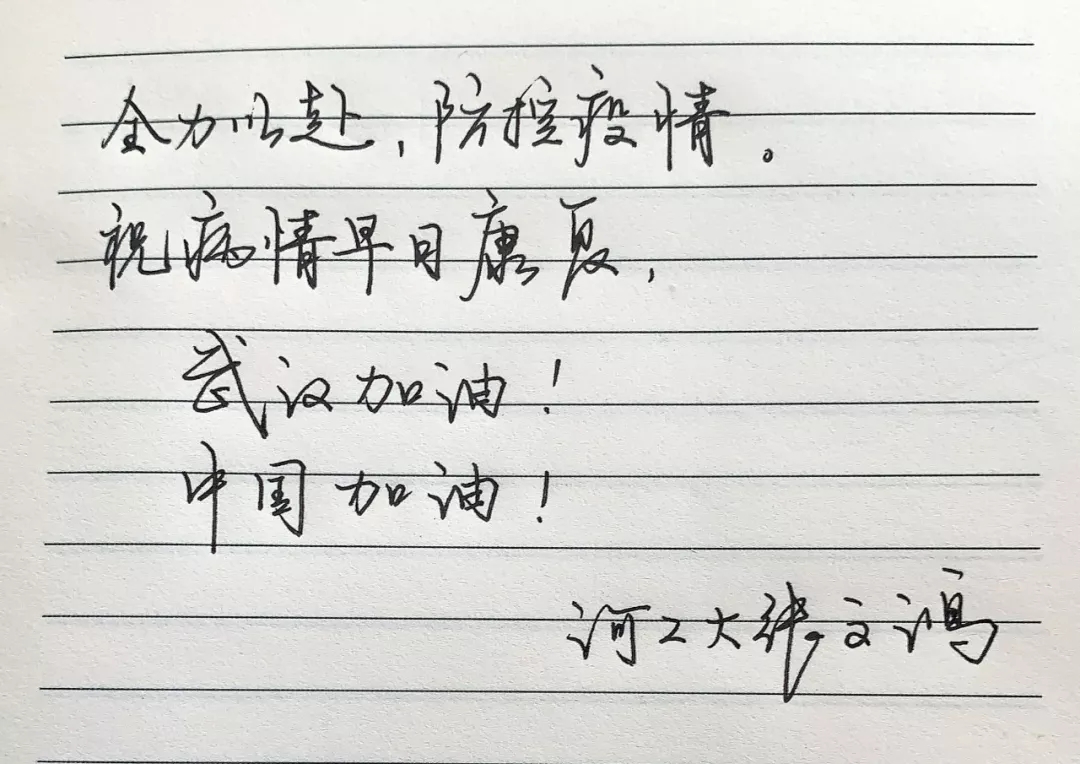 全力以赴,防控疫情。
祝病情早日康复,
武汉加油!
中国加油!
河工大 文鸿